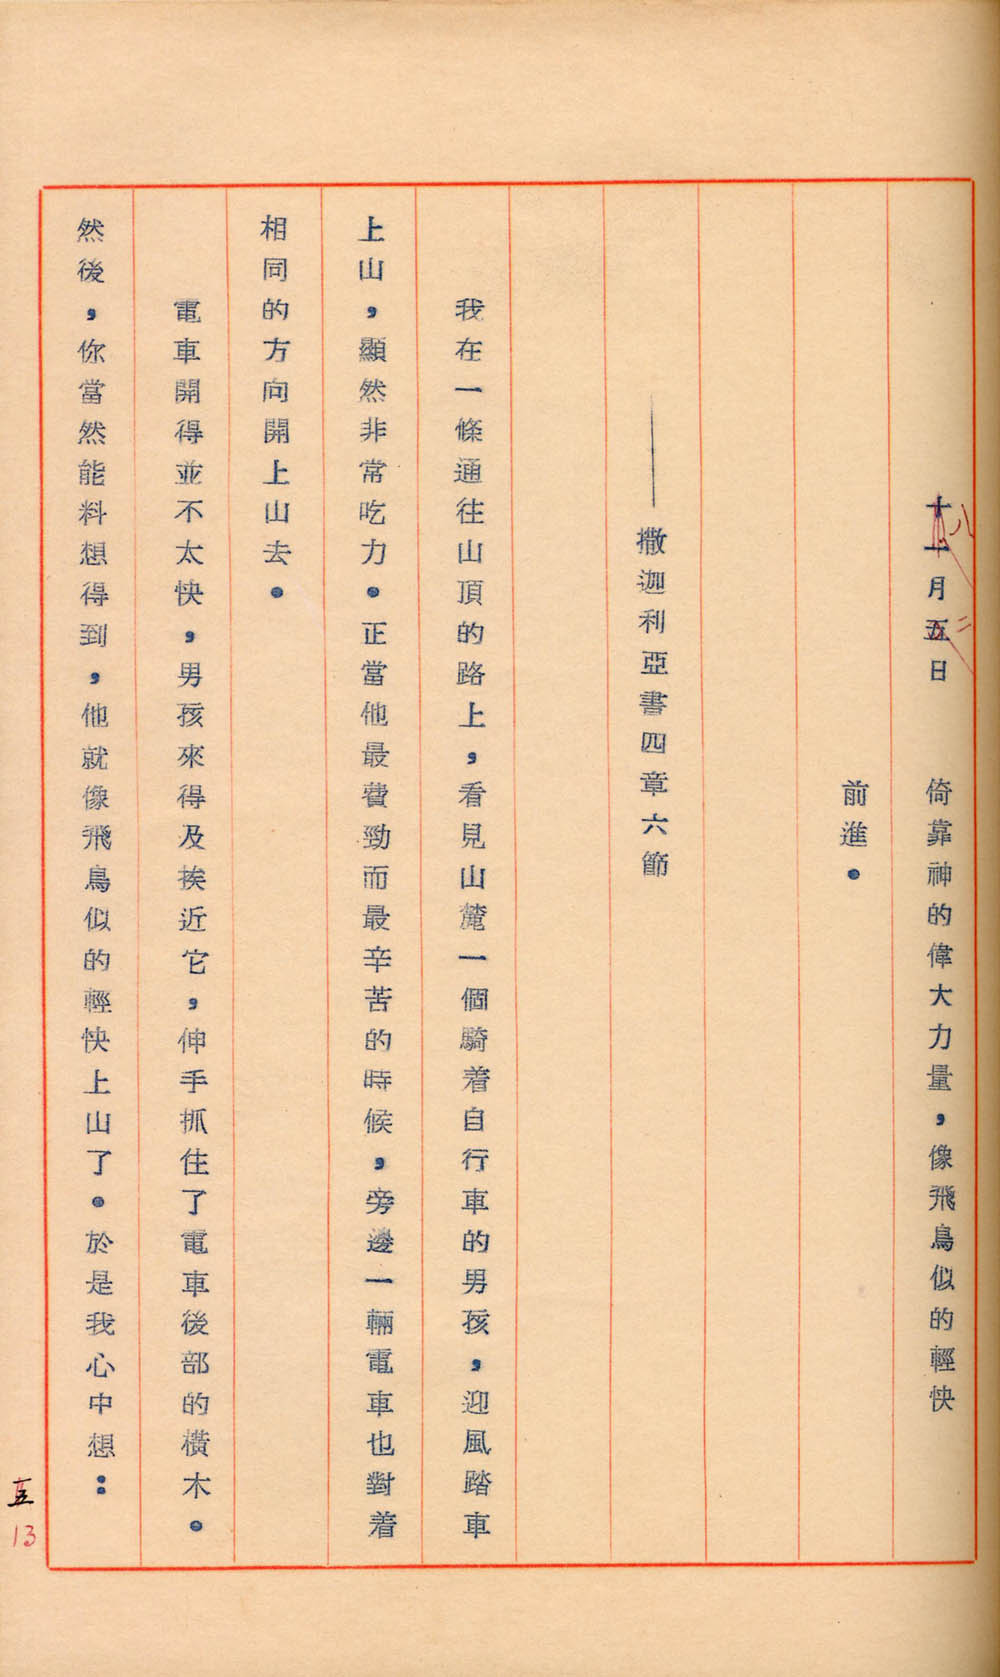 十一月五日　　倚靠神的偉大力量，像飛鳥似的輕快
八
二
前進。
——撒迦利亞書四章六節
我在一條通往山頂的路上，看見山麓一個騎着自行車的男孩，迎風踏車
上山，顯然非常吃力。正當他最費勁而最辛苦的時候，旁邊一輛電車也對着
相同的方向開上山去。
電車開得並不太快，男孩來得及挨近它，伸手抓住了電車後部的橫木。
然後，你當然能料想得到，他就像飛鳥似的輕快上山了。於是我心中想：
五
13